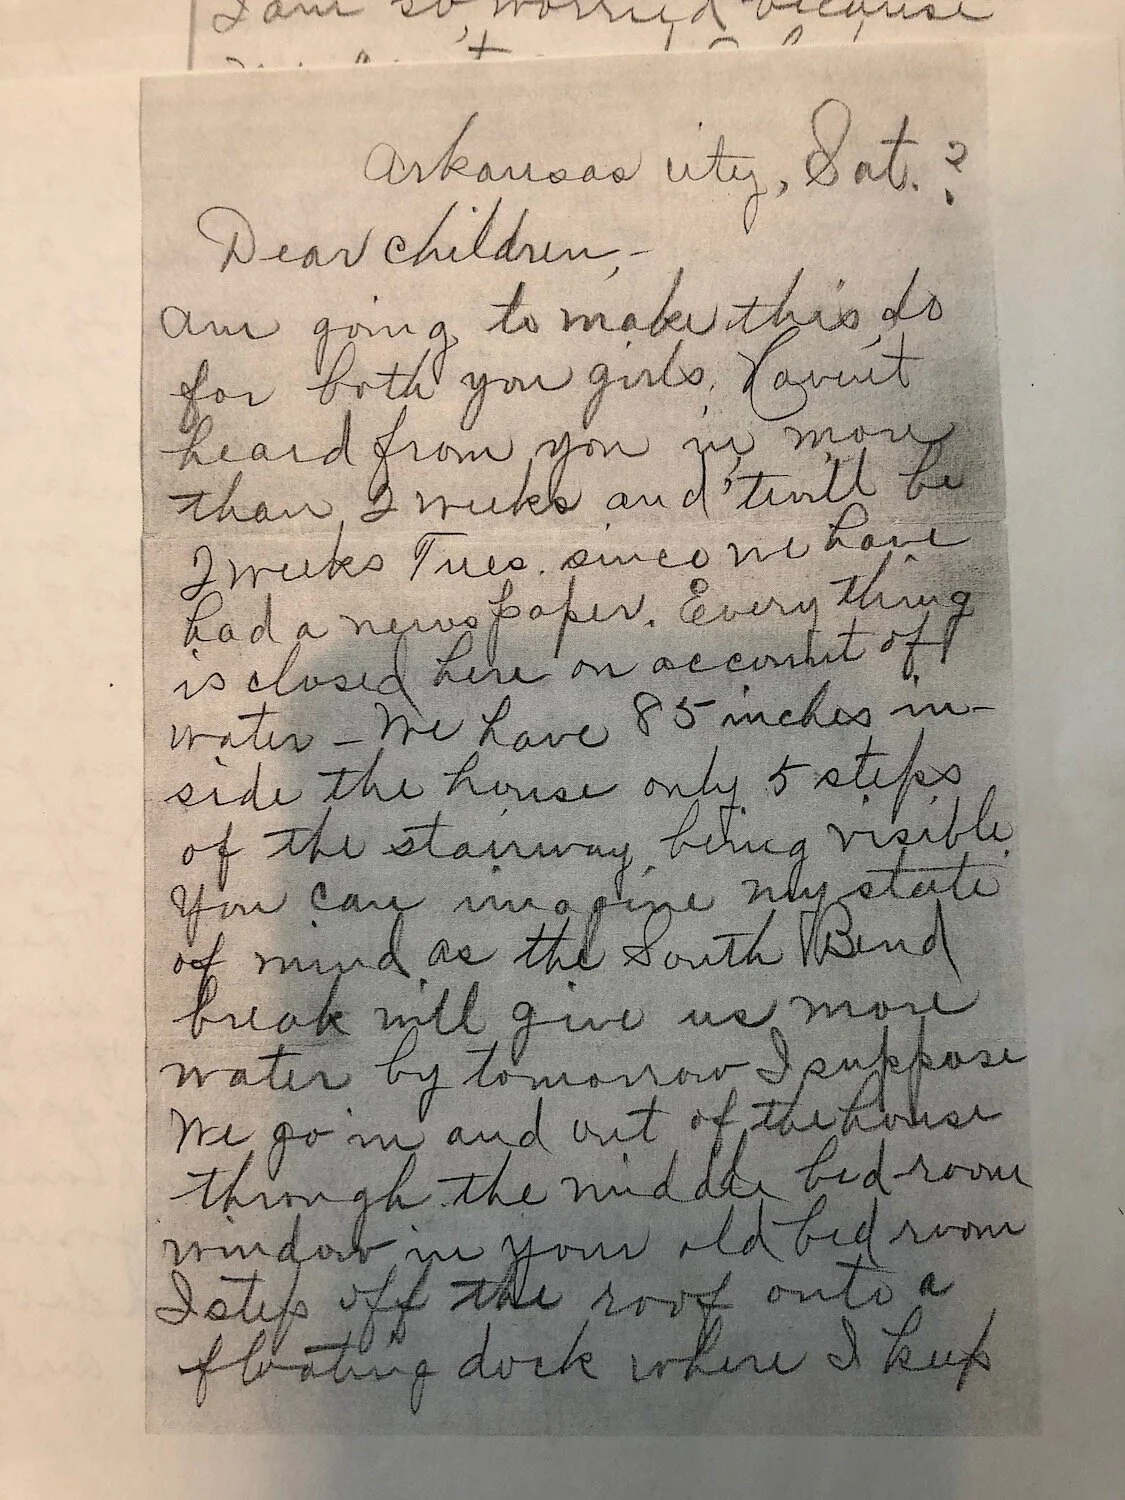 I am so worried because
Arkansas City, Sat.?
Dear children,-
Am going to make this do
for both you girls. Haven't
heard from you in more
than 2 weeks and 'twill be
2 weeks Tues. since we have
had a newspaper. Everything
is closed here on account of
water - We have 85 inches in-
side the house only 5 steps
of the stairway being visible.
You can imagine my state
of mind as the South Bend
break will give us more
water by tomorrow I suppose
We go in and out of the house
through the middle bed-room
window in your old bed room
I step off the roof onto a
floating dock where I keep